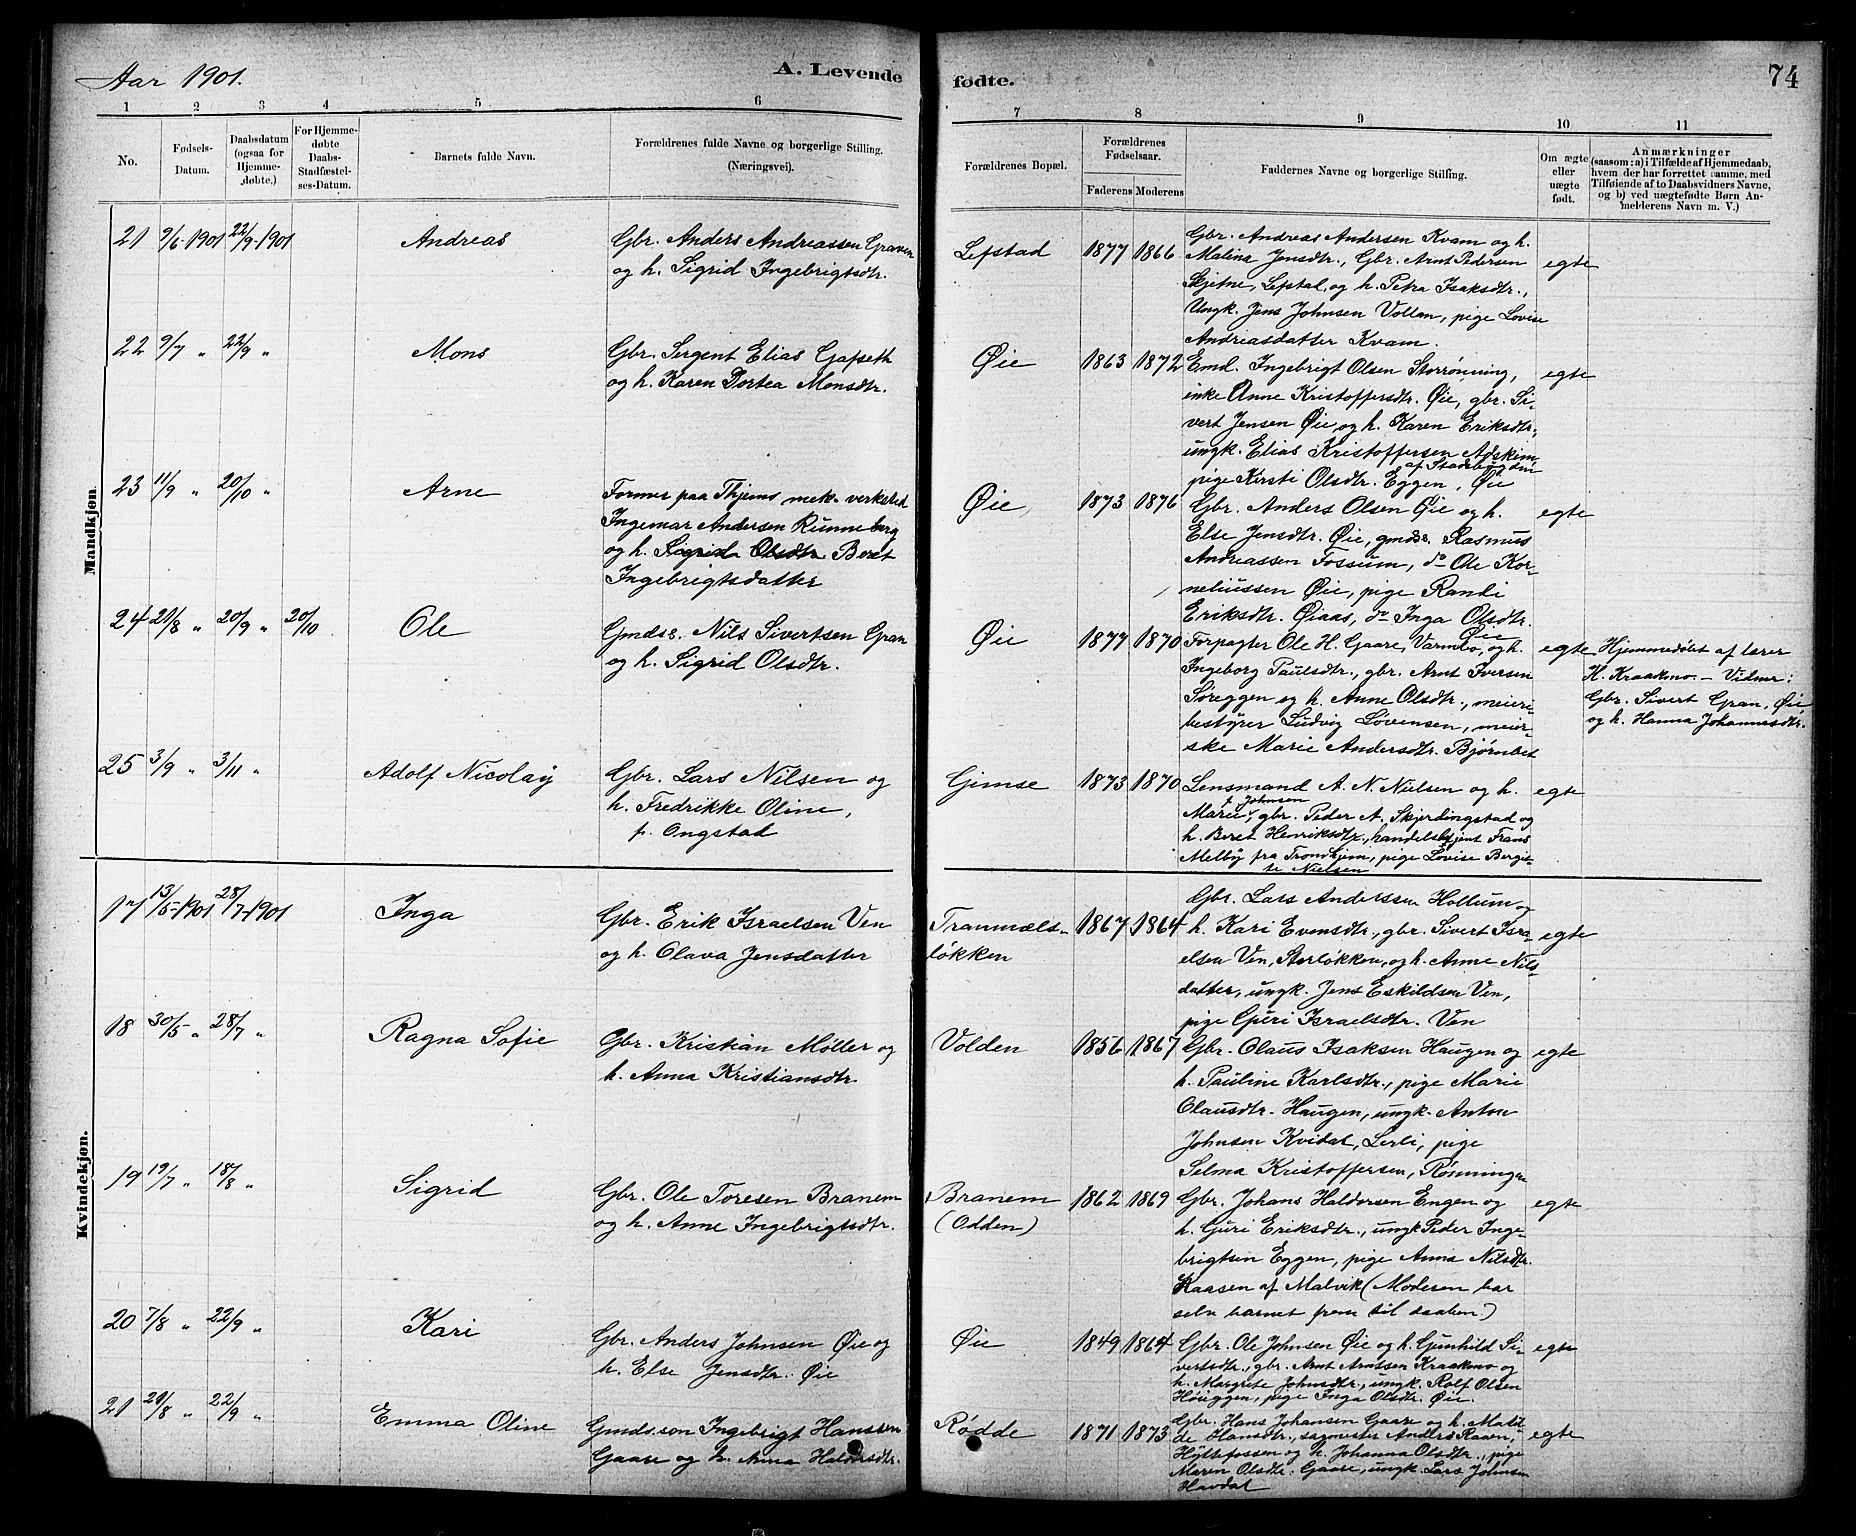 Aar 1901.
A. Levende
fødte.
74
1 2 3 4 5 6 7 8 9 10 11
No.
Fødsels-
Datum.
Daabsdatum
(ogsaa for
Hjemme-
døbte.)
For Hjemme-
døbte
Daabs-
Stadfæstel-
ses-Datum.
Barnets fulde Navn.
Forældrenes fulde Navne og borgerlige Stilling.
(Næringsvei).
Forældrenes Bopæl.
Forældrenes
Fødselsaar.
Faderens Moderens
Faddernes Navne og borgerlige Stilling.
Om ægte
eller
uægte
født.
Anmærkninger
(saasom: a) i Tilfælde af Hjemmedaab,
hvem der har forrettet samme, med
Tilføiende af to Daabsvidners Navne,
og b) ved uægtefødte Børn An-
melderens Navn m. V.)
Mandkjøn
21 9/6-1901 22/9-1901 Andreas
Gbr. Anders Andreassen Graven
og h. Sigrid Ingebrigtsdtr.
Lefstad 1877 1866
Gbr. Andreas Andersen Kvam og h.
Malina Jensdtr., Gbr. Arnt Pedersen
Skjetne, Lefstal, og h. Petra Isaksdtr.,
Ungk. Jens Johnsen Vollan, pige Lovise
Andreasdatter Kvam.
egte
22 9/7 " 22/9 " Mons
Gbr. Sergent Elias Gafseth
og h. Karen Dortea Monsdtr.
Øie 1863 1872
Emd. Ingebrigt Olsen Storrønning,
enke Anne Kristoffersdtr. Øie, gbr. Si-
vert Jensen Øie, og h. Karen Eriksdtr.,
ungk. Elias Kristoffersen Adskim
af Stadsbygden
pige Kirsti Olsdtr. Eggen, Øie
egte
23 11/9 " 20/10 " Arne
Former paa Thjems mek. verksted
Ingemar Andersen Runneberg
og h. Sigrid Olsdtr Beret
Ingebrigtsdatter
Øie 1873 1876
Gbr. Anders Olsen Øie og h.
Else Jensdtr. Øie, gmds. Rasmus
Andreassen Fossum, do Ole Kor-
neliussen Øie, pige Randi
Eriksdtr. Øiaas, do Inga Olsdtr.
Øie
egte
24 21/8 " 20/9 " 20/10 Ole
Gmds. Nils Sivertsen Gran
og h. Sigrid Olsdtr.
Øie 1877 1870
Forpagter Ole H. Gaare, Varmbo, og h.
Ingeborg Paulsdtr., gbr. Arnt Iversen
Søreggen og h. Anne Olsdtr., meieri-
bestyrer Ludvig Løvensen, meier-
ske Marie Andersdtr. Bjørnbet
egte
Hjemmedøbt af lærer
H. Kraakmo - Vidner:
Gbr. Sivert Gran, Øie
og h. Hanna Johannesdtr.
25 3/9 " 3/11 " Adolf Nicolay
Gbr. Lars Nilsen og
h. Fredrikke Oline,
p. Ongstad
Gimse 1873 1870
Lensmand A. N. Nielsen og h.
f. Johnsen
Marie, gbr. Peder A. Skjerdingstad og
h. Beret Henriksdtr, handelsbetjent Frans
Melby fra Trondhjem, pige Lovise Bergit-
te Nielsen
egte
Kvindekjøn.
17 13/5-1901 28/7-1901 Inga
Gbr. Erik Israelsen Ven
og h. Olava Jensdatter
Tranmæls-
løkken
1867 1864
Gbr. Lars Anderssen Hollum og
h. Kari Evensdtr., gbr. Sivert Isra-
elsen Ven, Storløkken, og h. Anne Nils-
datter, ungk. Jens Eskildsen Ven,
pige Guri Israelsdtr. Ven
egte
18 30/5 " 28/7 " Ragna Sofie
Gbr. Kristian Møller og
h. Anna Kristiansdtr
Volden 1856 1867
Gbr. Olaus Isaksen Haugen og
h. Pauline Karlsdtr., pige Marie
Olausdtr. Haugen, ungk. Anton
Johnsen Kvidal, Lerli, pige
Selma Kristoffersen, Rønningen
egte
19 19/7 " 18/8 " Sigrid
Gbr. Ole Toresen Branem
og h. Anne Ingebrigtsdtr.
Branem
(Odden)
1862 1869
Gbr. Johans Haldorsen Engen og
h. Guri Eriksdtr., ungk Peder Inge-
brigtsen Eggen, pige Anna Nilsdtr.
Kaasen af Malvik (Moderen bar
selv barnet frem til daaben.)
egte
20 7/8 " 22/9 " Kari
Gbr. Anders Johnsen Øie og
h. Else Jensdtr. Øie
Øie 1849 1864
Gbr. Ole Johnsen Øie og h. Gunhild Si-
vertsdtr., gbr. Arnt Arntsen Kraakmo og
h. Margrete Johnsdtr., ungk. Rolf Olsen
Høiggen, pige Inga Olsdtr. Øie.
egte
21 29/8 " 22/9 " Emma Oline
Gmds.søn Ingebrigt Hanssen
Gaare og h. Anna Haldorsdtr.
Rødde 1871 1873
Gbr. Hans Johansen Gaare og h. Matil-
de Hansdtr., sagmester Anders Raaen,
Hyttefossen og h. Johanna Olsdtr., pige
Maren Olsdtr. Gaare, ungk. Lars Johnsen
Havdal
egte